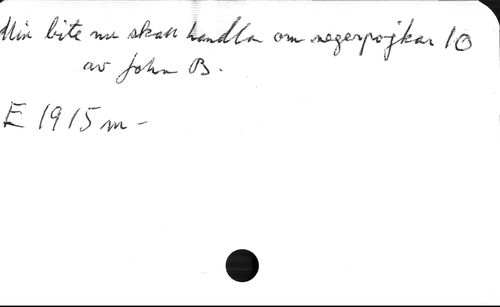 Min bite nu skall handla om negerpojkar 10
av John B.
E 1915 m -